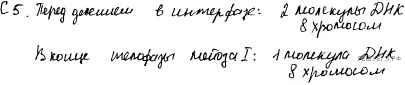 С5. Перед делением в интерфазе: 2 молекулы ДНК
8 хромосом
В конце телофазы мейоза I: 1 молекула ДНК
8 хромосом